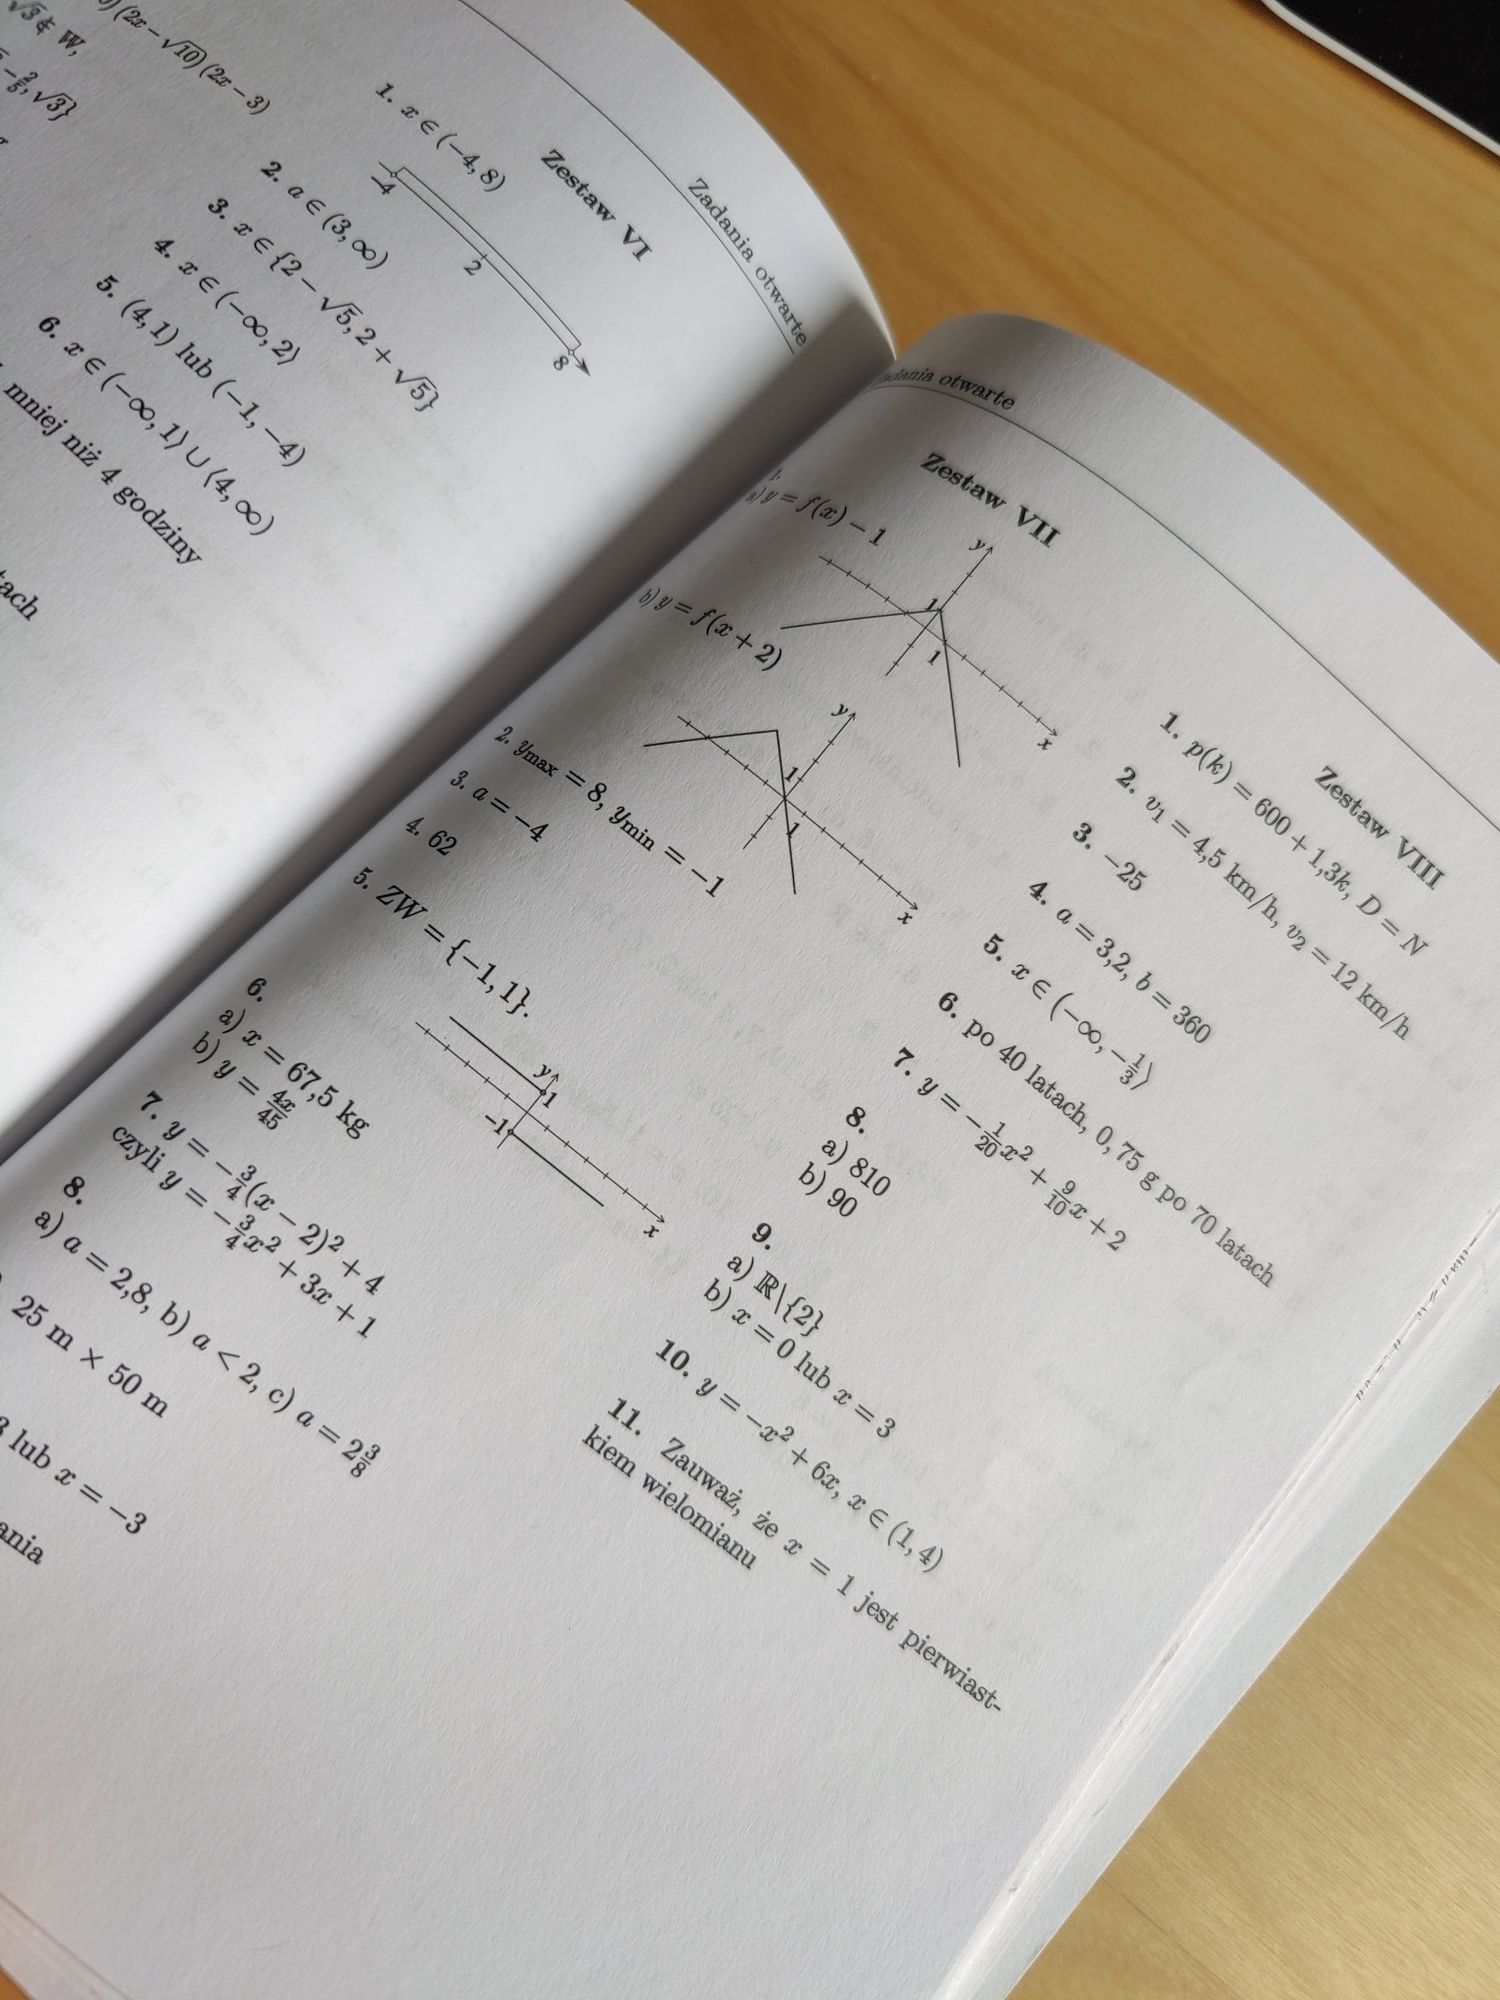 (2x − √10)(2x − 3)
√3 ∉ W,
−2/5, √3}
Zadania otwarte
Zestaw VI
1. x ∈ (−4, 8)
−4 2 8
2. a ∈ (3, ∞)
3. x ∈ {2 − √5, 2 + √5}
4. x ∈ (−∞, 2⟩
5. (4, 1) lub (−1, −4)
6. x ∈ (−∞, 1⟩ ∪ (4, ∞)
mniej niż 4 godziny
Zadania otwarte
Zestaw VII
1.
a) y = f(x) − 1
y
1
1
x
b) y = f(x + 2)
y
1
1
x
2. ymax = 8, ymin = −1
3. a = −4
4. 62
5. ZW = {−1, 1}.
y
1
−1
x
6.
a) x = 67,5 kg
b) y = 4x/45
7. y = −3/4(x − 2)² + 4
czyli y = −3/4x² + 3x + 1
8.
a) a = 2,8, b) a < 2, c) a = 2 3/8
25 m × 50 m
lub x = −3
Zestaw VIII
1. p(k) = 600 + 1,3k, D = N
2. v₁ = 4,5 km/h, v₂ = 12 km/h
3. −25
4. a = 3,2, b = 360
5. x ∈ (−∞, −1/3⟩
6. po 40 latach, 0, 75 g po 70 latach
7. y = −1/20x² + 9/10x + 2
8.
a) 810
b) 90
9.
a) ℝ\{2}
b) x = 0 lub x = 3
10. y = −x² + 6x, x ∈ (1, 4)
11. Zauważ, że x = 1 jest pierwiast-
kiem wielomianu